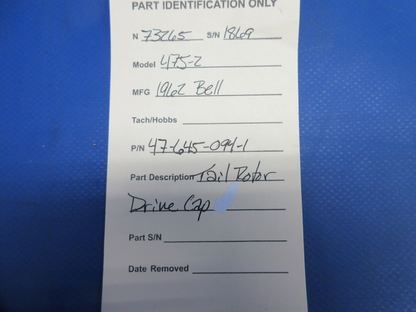 PART IDENTIFICATION ONLY
N 73265 S/N 1869
Model 47J-2
MFG 1962 Bell
Tach/Hobbs
P/N 47-645-094-1
Part Description Tail Rotor
Drive Cap
Part S/N
Date Removed